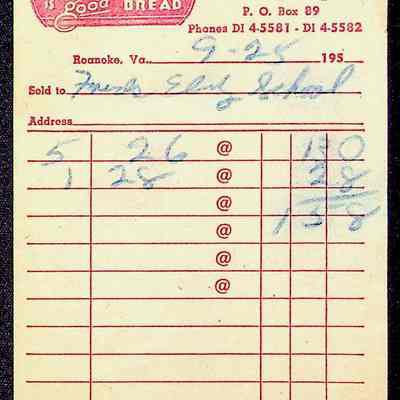 is good BREAD
P. O. Box 89
Phones DI 4-5581 - DI 4-5582
Roanoke, Va. 9-25 195
Sold to Elem School
Address
5 26 @ 130
1 28 @ 28
@ 158
@
@
@